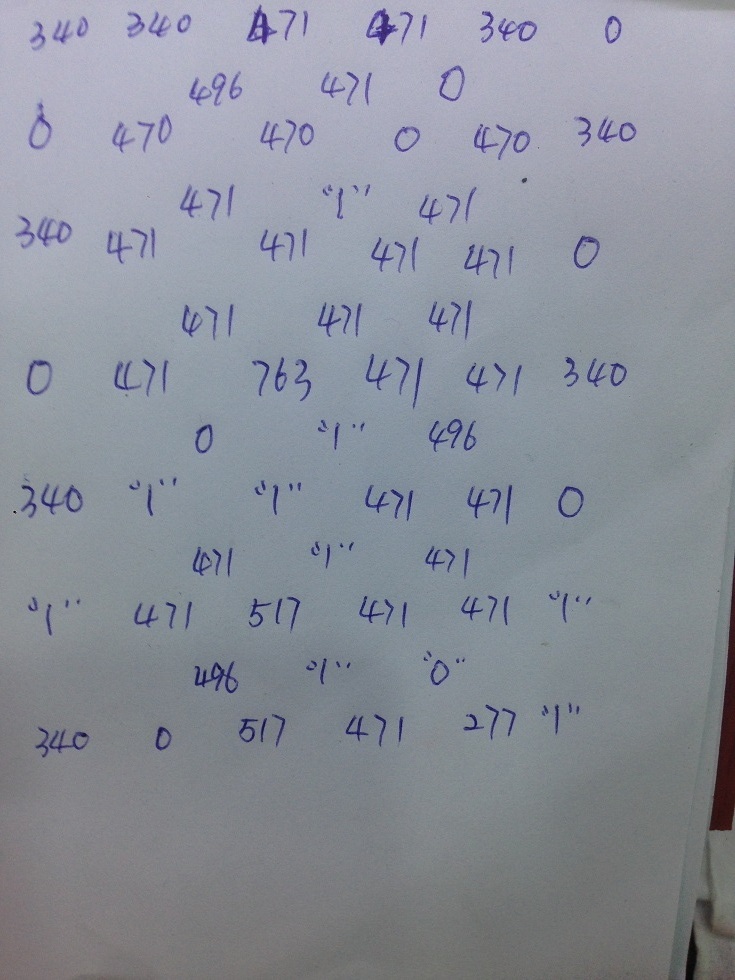 340 340 471 471 340 0
496 471 0
0 470 470 0 470 340
471 "1" 471
340 471 471 471 471 0
471 471 471
0 471 763 471 471 340
0 "1" 496
340 "1" "1" 471 471 0
471 "1" 471
"1" 471 517 471 471 "1"
496 "1" "0"
340 0 517 471 277 "1"